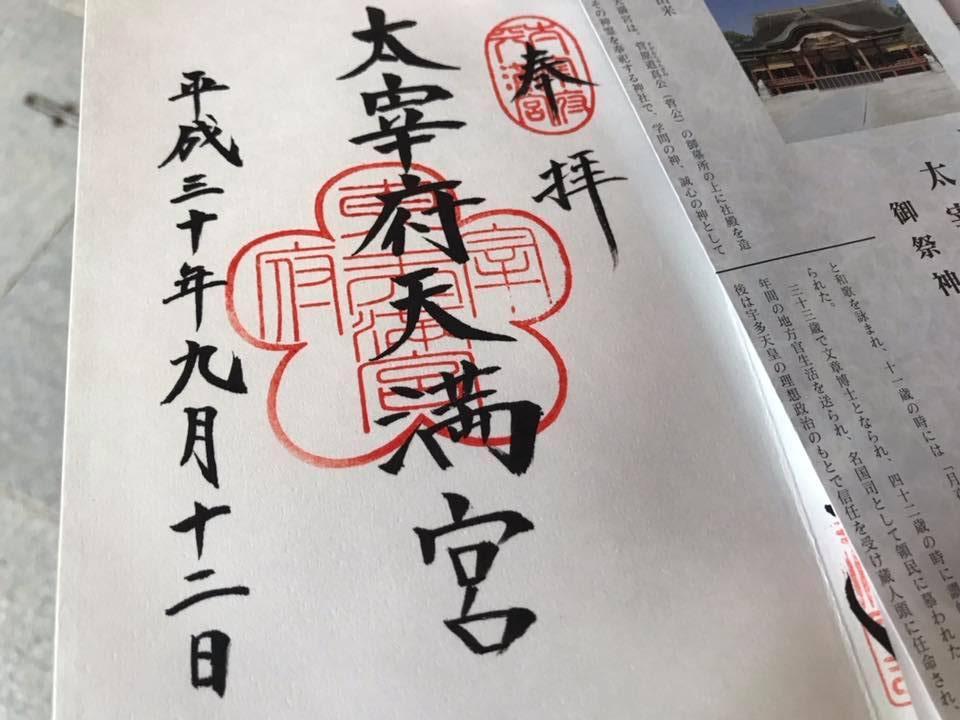 奉拝
太宰府天満宮
平成三十年九月十二日
太宰府天満宮
太宰府天満宮
由来
天満宮は、菅原道真公（菅公）の御墓所の上に社殿を造
その神霊を奉祀する神社で、学問の神、誠心の神として
太宰
御祭神
と和歌を詠まれ、十一歳の時には「月
られた。
三十三歳で文章博士となられ、四十二歳の時に讃
年間の地方官生活を送られ、名国司として領民に慕われた
後は宇多天皇の理想政治のもとで信任を受け蔵人頭に任命され、